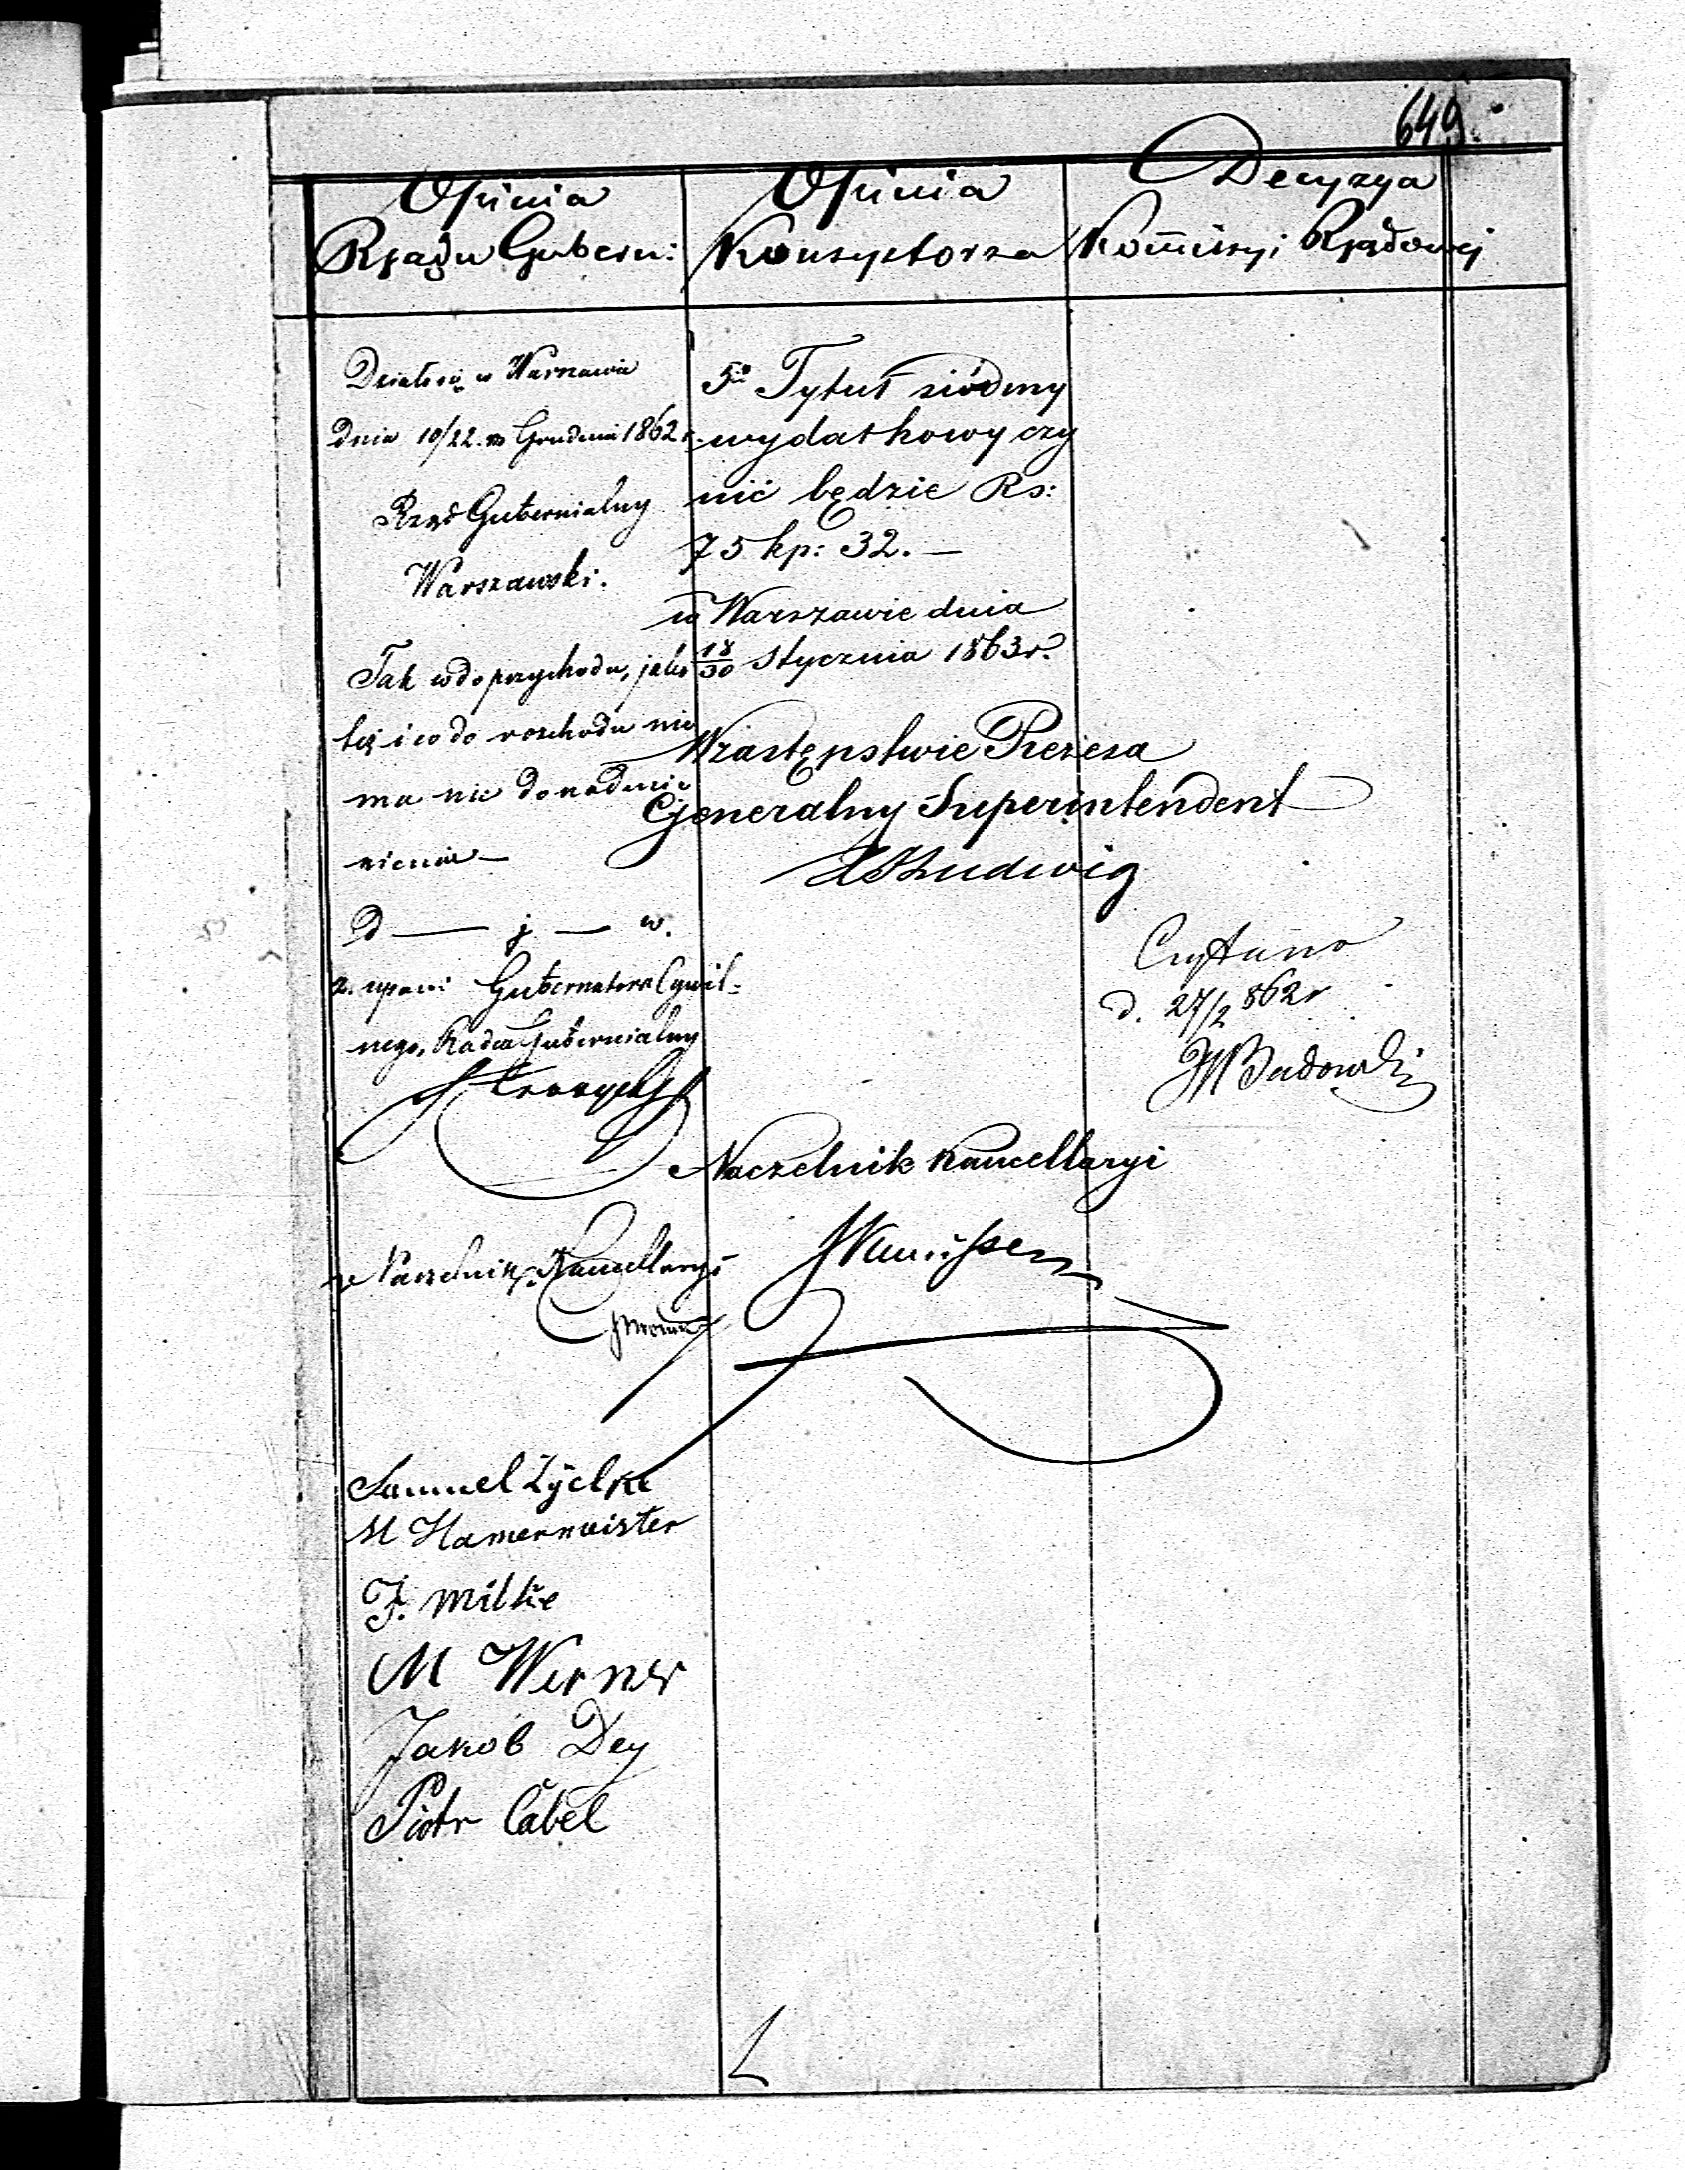 649.
Opinia
Rządu Gubern:
Działo się w Warszawie
dnia 10/22. m Grudnia 1862 r.
Rząd Gubernialny
Warszawski.
Tak co do przychodu, jako
też i co do rozchodu nie
ma nic do nadmie
nienia —
D — j — w.
z. upow: Gubernatora Cywil-
nego, Radca Gubernialny
Naczelnik Kancellaryi
Samuel Zyelke
M Hamermeister
F. Milke
M Werner
Jakob Dey
Piotr Cabel
Opinia
Konsystorza
5io Tytuł siódmy
wydatkowy czy
nić będzie Rs:
75 kp: 32. —
w Warszawie dnia
18/30 Stycznia 1863 r.
W zastępstwie Prezesa
Generalny Superintendent
Ludwig
Naczelnik Kancellaryi
Decyzya
Kommisyi Rządowej
Czytano
d. 27/2 862 r